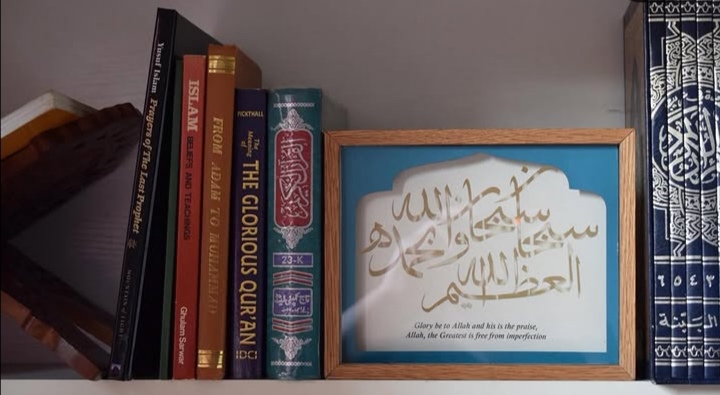 Yusuf Islam Prayers of The Last Prophet ﷺ
ISLAM BELIEFS AND TEACHINGS Ghulam Sarwar
FROM ADAM TO MUHAMMAD
PICKTHALL The Meaning of THE GLORIOUS QUR'AN IDCI
القرآن الكريم
23-K
سبحان الله وبحمده
سبحان الله العظيم
Glory be to Allah and his is the praise,
Allah, the Greatest is free from imperfection
٦ ٥ ٤ ٣